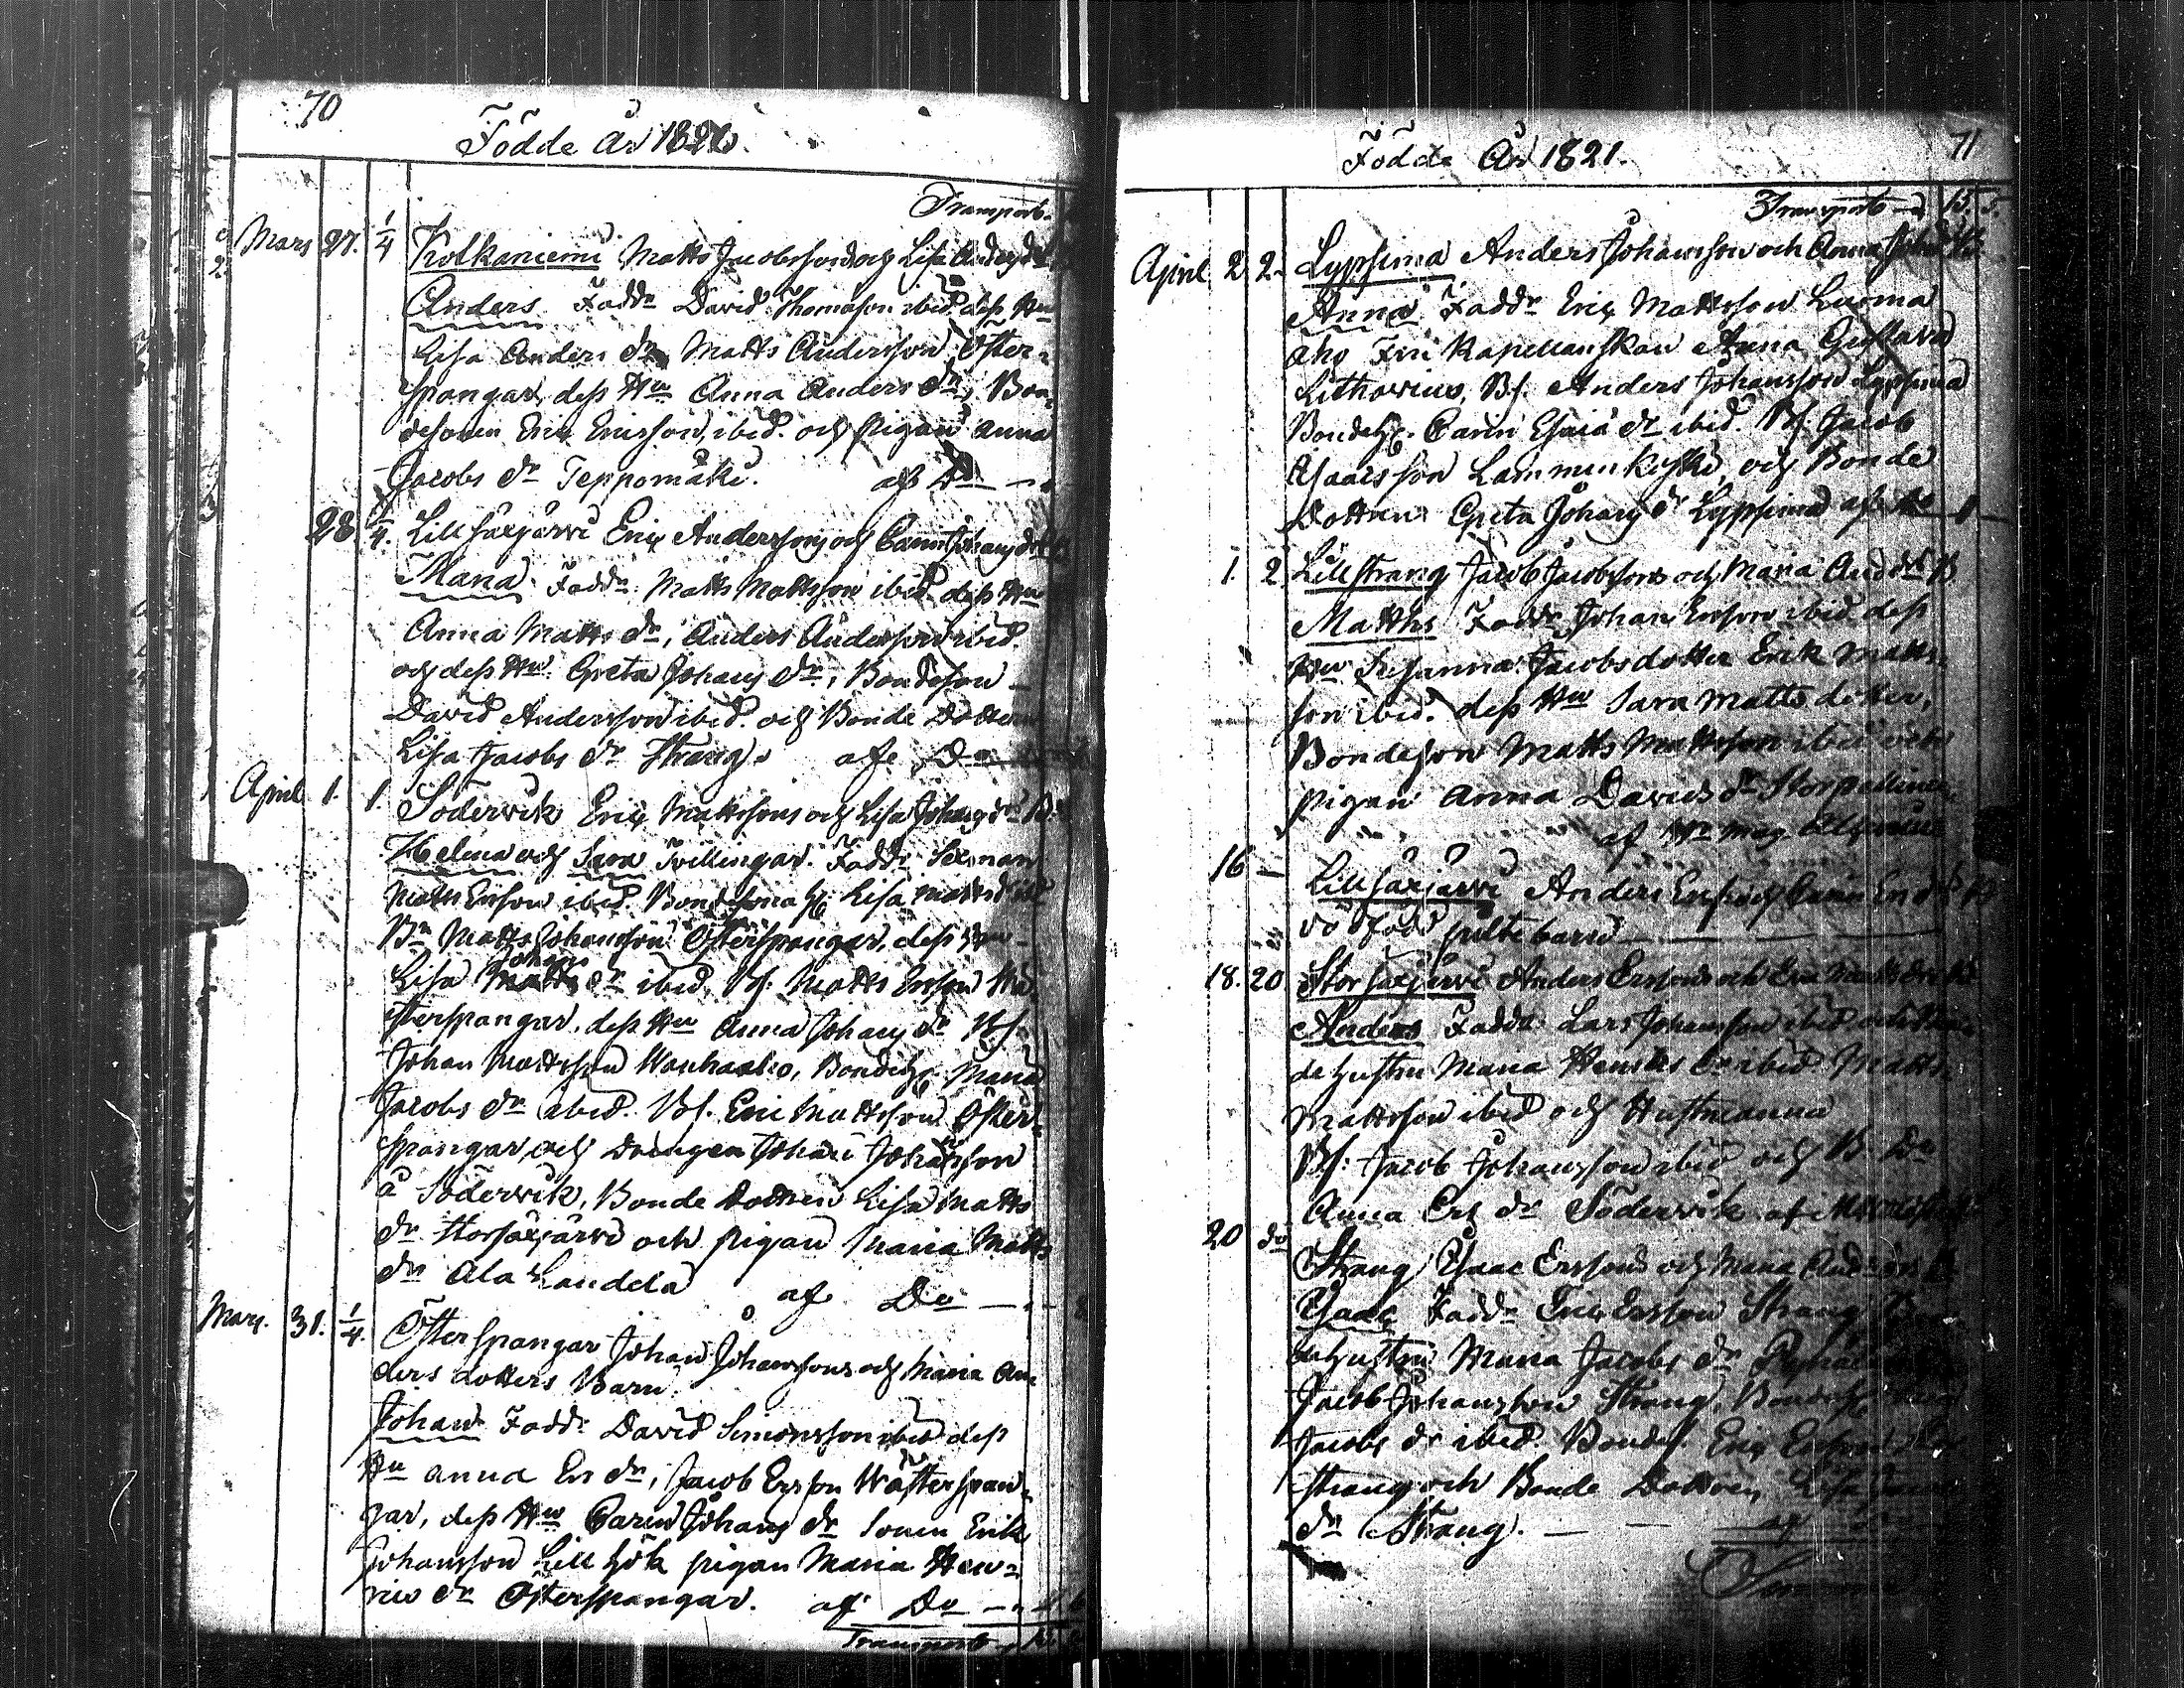 70
Födde År 1821.
Transport
Mars 27. 1/4 Kolkaniemi Matts Jacobssons och Lisa Anders dr
Anders. Faddr David Thomasson ibid. dess Hu
Lisa Anders dr Matts Andersson Öster-
spangar, dess Hu Anna Anders dr, Bon-
desonen Eric Ericsson, ibid. och pigan Anna
Jacobs dr Teppomäki. af Do
28. 1/4. Lillsärjärvi Eric Anderssons och Carin Johans dr
Maria. Faddr Matts Mattsson ibid. dess Hu
Anna Matts dr, Anders Andersson ibid.
och dess Hu Greta Johans dr, Bondeson
David Andersson ibid. och Bonde Dottern
Lisa Jacobs dr Strang. af Do
April 1. 1 Södervik Eric Mattssons och Lisa Johans dr B.
Helena och Sara Tvillingar. Faddr Sexman
Matts Ersson ibid. Lisa Matts
Bn Matts Johansson Österspangar, dess Hu
Lisa Johans dr ibid. Bs. Matts Ersson
sterspangar, dess Hu Anna Johans dr Bs.
Johan Mattsson Wanhaaho, Bondeh. Maria
Jacobs dr ibid. Bs. Eric Mattsson Öster-
spangar, och Drängen Johan Johansson
å Södervik, Bonde Dottren Lisa Matts
dr Storsärjärvi och pigan Maria Matts
dr Ala Landela af Do
Mars. 31. 1/4. Österspangar Johan Johanssons och Maria An
ders dotters Barn.
Johan Faddr David Simonsson ibid dess
Hu Anna Ers dr, Jacob Ersson Wästerspan-
gar, dess Hu Carin Johans dr Sonen Erik
Johansson Lill Hök pigan Maria Hen-
rics dr Österspangar. af Do
Transport
71
Födde År 1821.
Transport 15. 5.
April 2 2. Lypsinä Anders Johansson och Anna
Anna Faddr Eric Mattsson Luoma
aho Fru Kapellanskan Anna Gustava
Lithovius, Bs. Anders Johansson Lypsinä
Bondeh. Carin Esaiæ dr ibid. Bs. Jacob
Isaacsson Lamminkoski, och Bonde
Dottren Greta Johans dr Lypsinä af Do
1. 2 Lillstrang Jacob Jacobssons och Maria And. dr B
Matths Faddr Johan Ersson ibid. dess
Hu Susanna Jacobsdotter Erik Matts
son ibid. dess Hu Sara Mattsdotter,
Bondeson Matts Mattsson ibid och
pigan Anna Davids dr Storpellinen
af Hr Mag.
16 Lillsärjärvi Anders Erss. och Carin
död född gultebarn
18. 20 Storsärjärvi Anders Erssons och Eva Matts dr
Anders Faddr Lars Johansson ibid och Bon-
de Hustru Maria Henriks dr ibid Matts
Mattsson ibid och Hustru Anna
Bs. Jacob Johansson ibid och B. Dr
Anna Ers dr Södervik af
20 do Strang Isaac Erssons och Maria Anders
Isaac Faddr Eric Ersson Strang
dehustru Maria Jacobs dr
Jacob Johansson Strang, Bondeh.
Jacobs dr ibid. Bondes. Eric Ersson
strang och Bonde Dottren Lisa
dr Strang. af